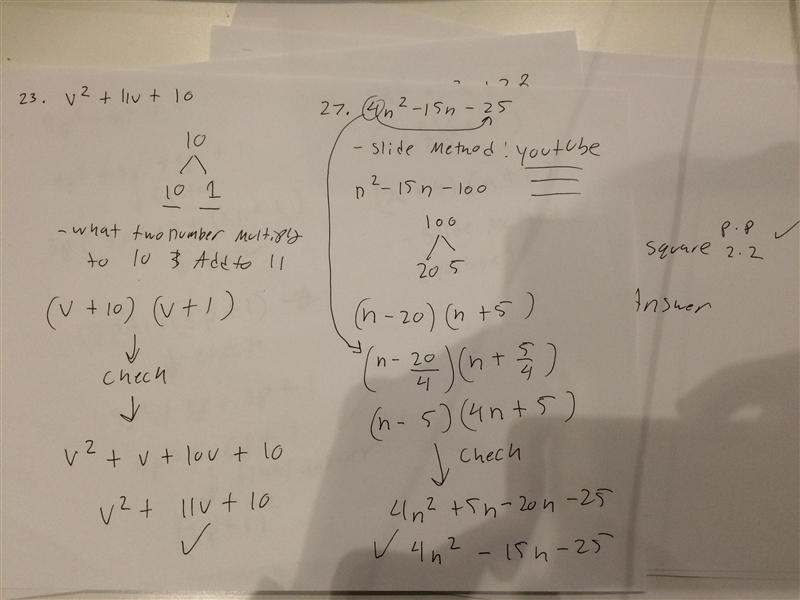 23. v² + 11v + 10
10
10 1
- what two number multiply
to 10 & Add to 11
(v + 10) (v + 1)
check
v² + v + 10v + 10
v² + 11v + 10
✓
27. 4n² - 15n - 25
- slide Method: youtube
n² - 15n - 100
100
20 5
(n - 20) (n + 5)
(n - 20/4) (n + 5/4)
(n - 5) (4n + 5)
check
4n² + 5n - 20n - 25
✓ 4n² - 15n - 25
p.p ✓
square 2.2
Answer